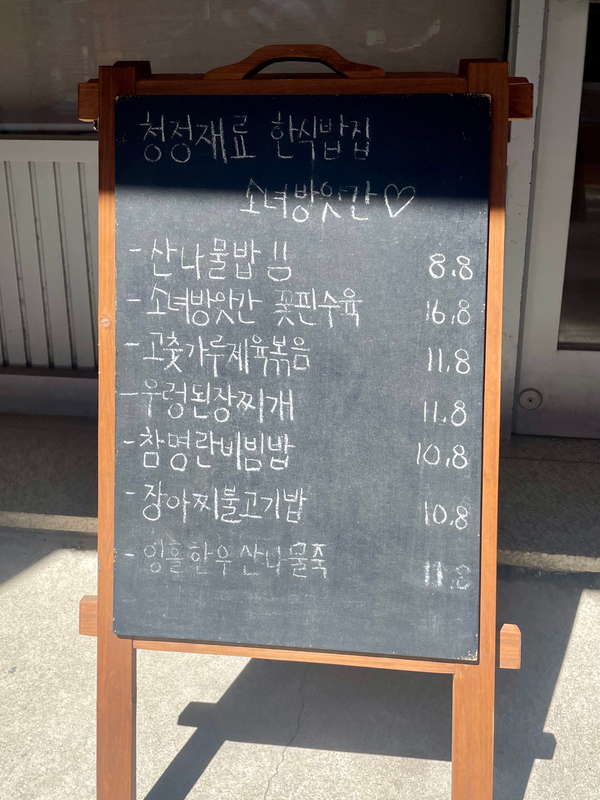 청정재료 한식밥집
소녀방앗간♡
- 산나물밥 !! 8.8
- 소녀방앗간 꽃핀수육 16.8
- 고춧가루제육볶음 11.8
- 우렁된장찌개 11.8
- 참명란비빔밥 10.8
- 장아찌불고기밥 10.8
- 한우산나물죽 11.8